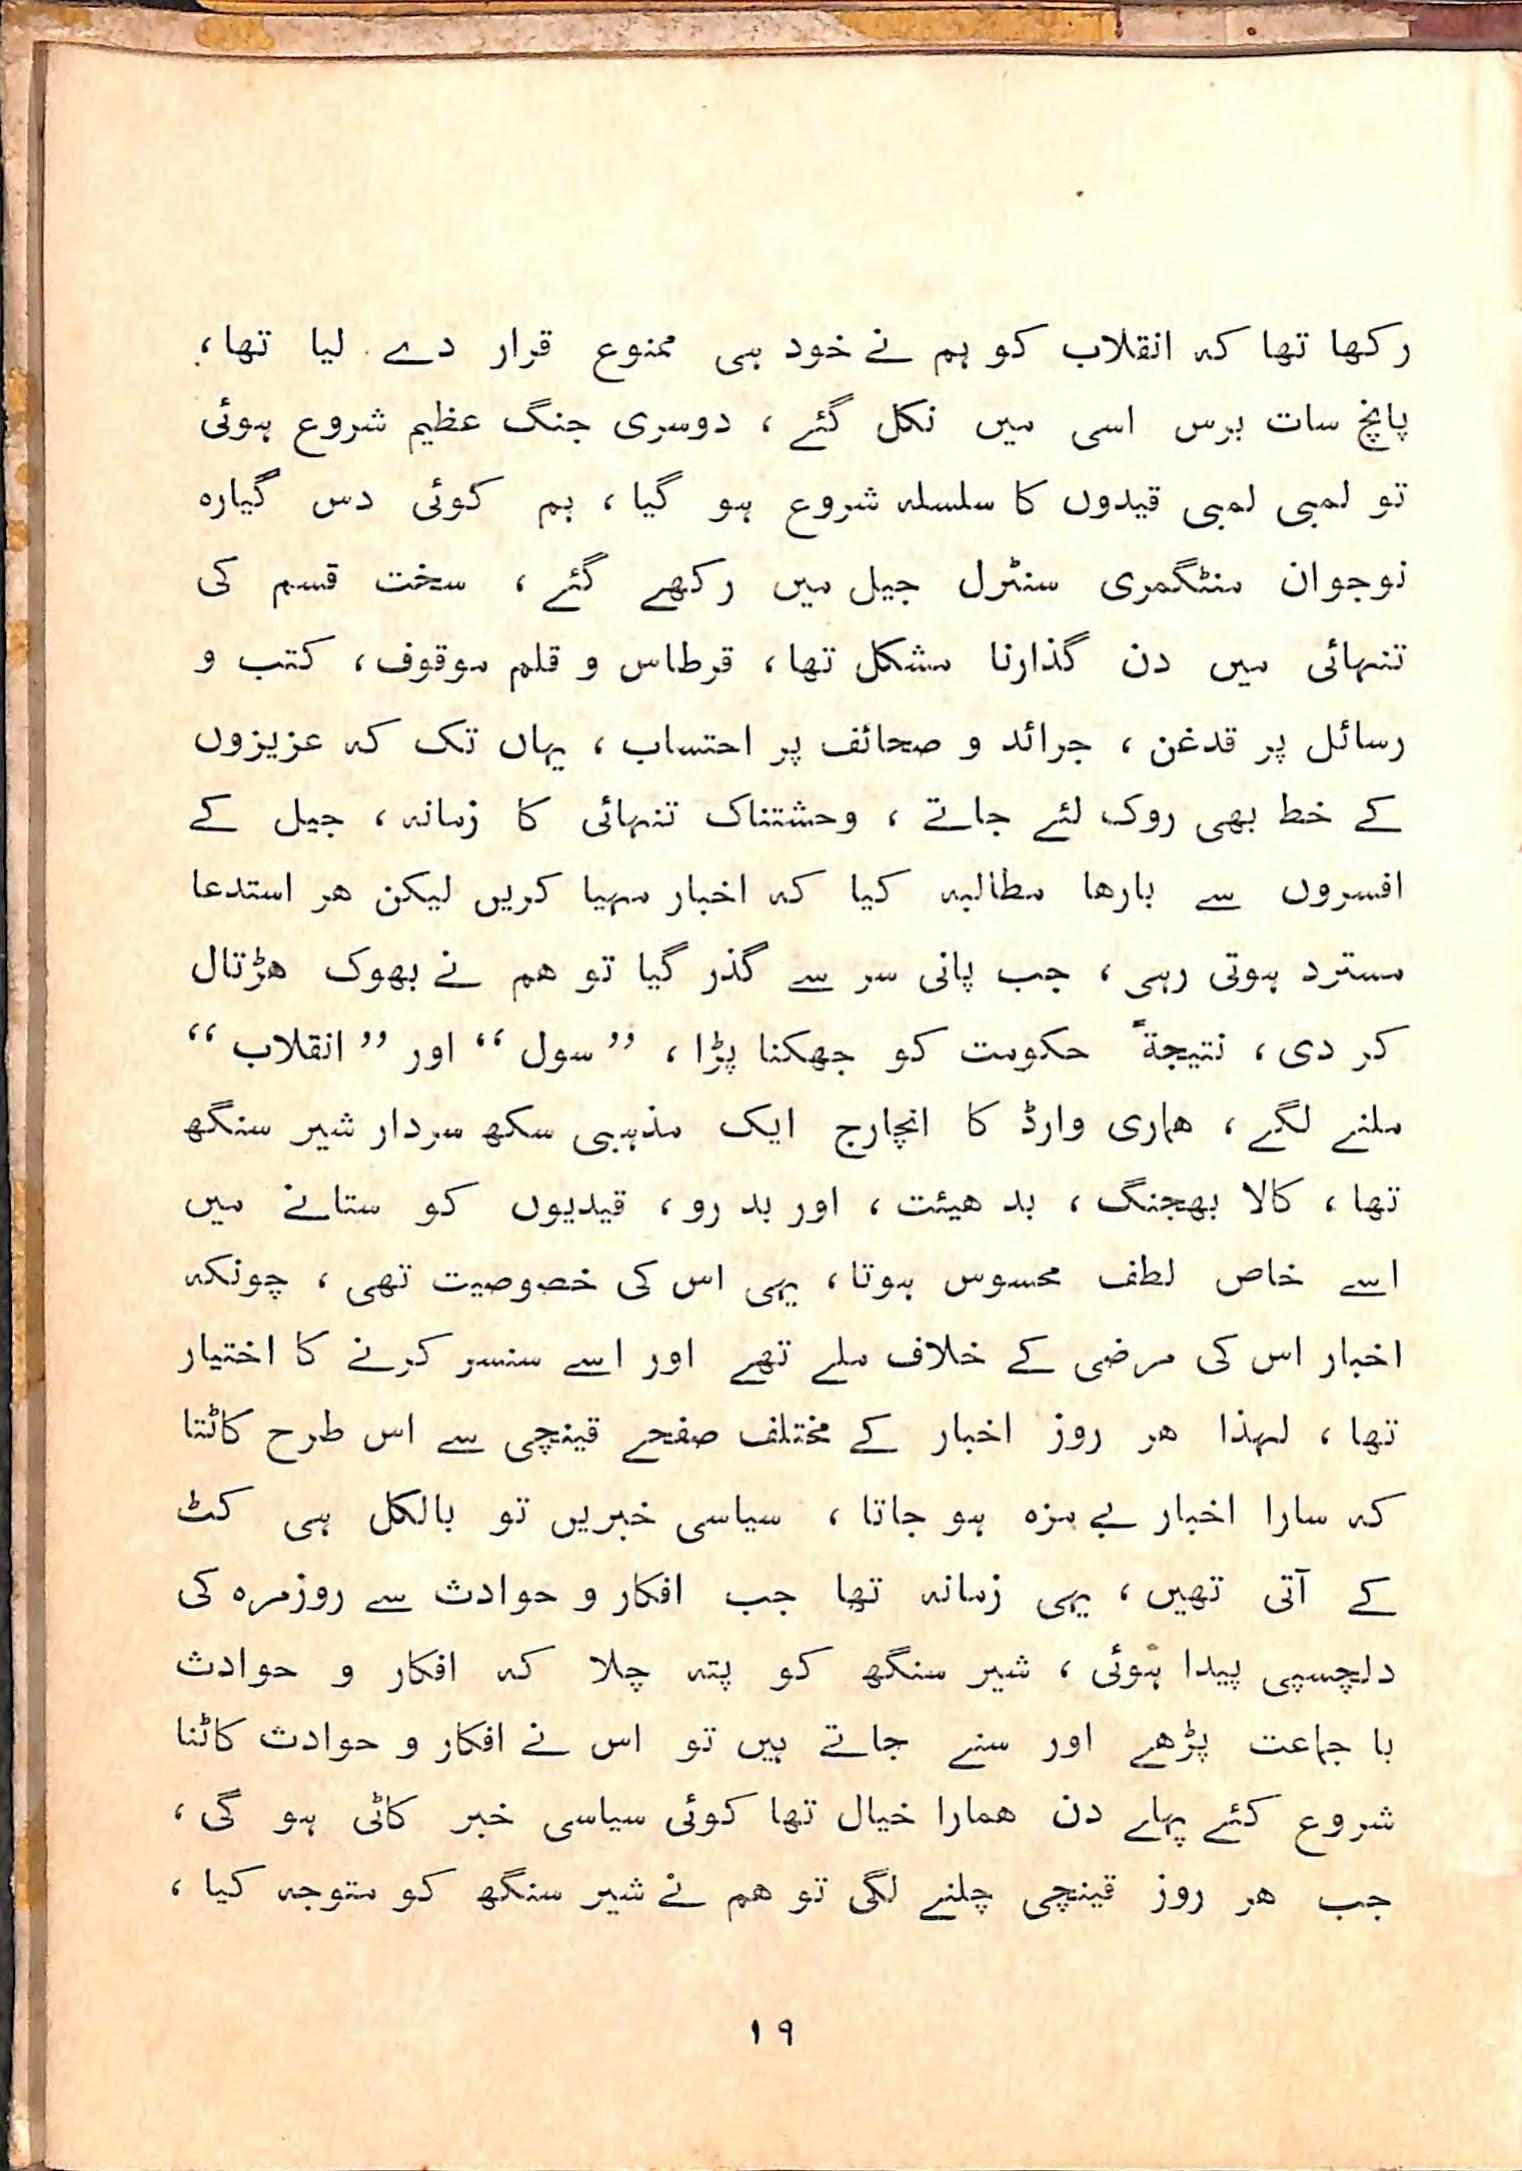 رکھا تھا کہ انقلاب کو ہم نے خود ہی ممنوع قرار دے لیا تھا ،
پانچ سات برس اسی میں نکل گئے ، دوسری جنگ عظیم شروع ہوئی
تو لمبی لمبی قیدوں کا سلسلہ شروع ہو گیا ، ہم کوئی دس گیارہ
نوجوان منٹگمری سنٹرل جیل میں رکھے گئے ، سخت قسم کی
تنہائی میں دن گذارنا مشکل تھا ، قرطاس و قلم موقوف ، کتب و
رسائل پر قدغن ، جرائد و صحائف پر احتساب ، یہاں تک کہ عزیزوں
کے خط بھی روک لئے جاتے ، وحشتناک تنہائی کا زمانہ ، جیل کے
افسروں سے بارہا مطالبہ کیا کہ اخبار مہیا کریں لیکن ھر استدعا
مسترد ہوتی رہی ، جب پانی سر سے گذر گیا تو ھم نے بھوک ھڑتال
کر دی ، نتیجةً حکومت کو جھکنا پڑا ، ”سول“ اور ”انقلاب“
ملنے لگے ، ھماری وارڈ کا انچارج ایک مذہبی سکھ سردار شیر سنگھ
تھا ، کالا بھجنگ ، بد ھیئت ، اور بد رو ، قیدیوں کو ستانے میں
اسے خاص لطف محسوس ہوتا ، یہی اس کی خصوصیت تھی ، چونکہ
اخبار اس کی مرضی کے خلاف ملے تھے اور اسے سنسر کرنے کا اختیار
تھا ، لہذا ھر روز اخبار کے مختلف صفحے قینچی سے اس طرح کاٹتا
کہ سارا اخبار بے مزہ ہو جاتا ، سیاسی خبریں تو بالکل ہی کٹ
کے آتی تھیں ، یہی زمانہ تھا جب افکار و حوادث سے روزمرہ کی
دلچسپی پیدا ہوئی ، شیر سنگھ کو پتہ چلا کہ افکار و حوادث
با جماعت پڑھے اور سنے جاتے ہیں تو اس نے افکار و حوادث کاٹنا
شروع کئے پہلے دن ھمارا خیال تھا کوئی سیاسی خبر کاٹی ہو گی ،
جب ھر روز قینچی چلنے لگی تو ھم نے شیر سنگھ کو متوجہ کیا ،
۱۹